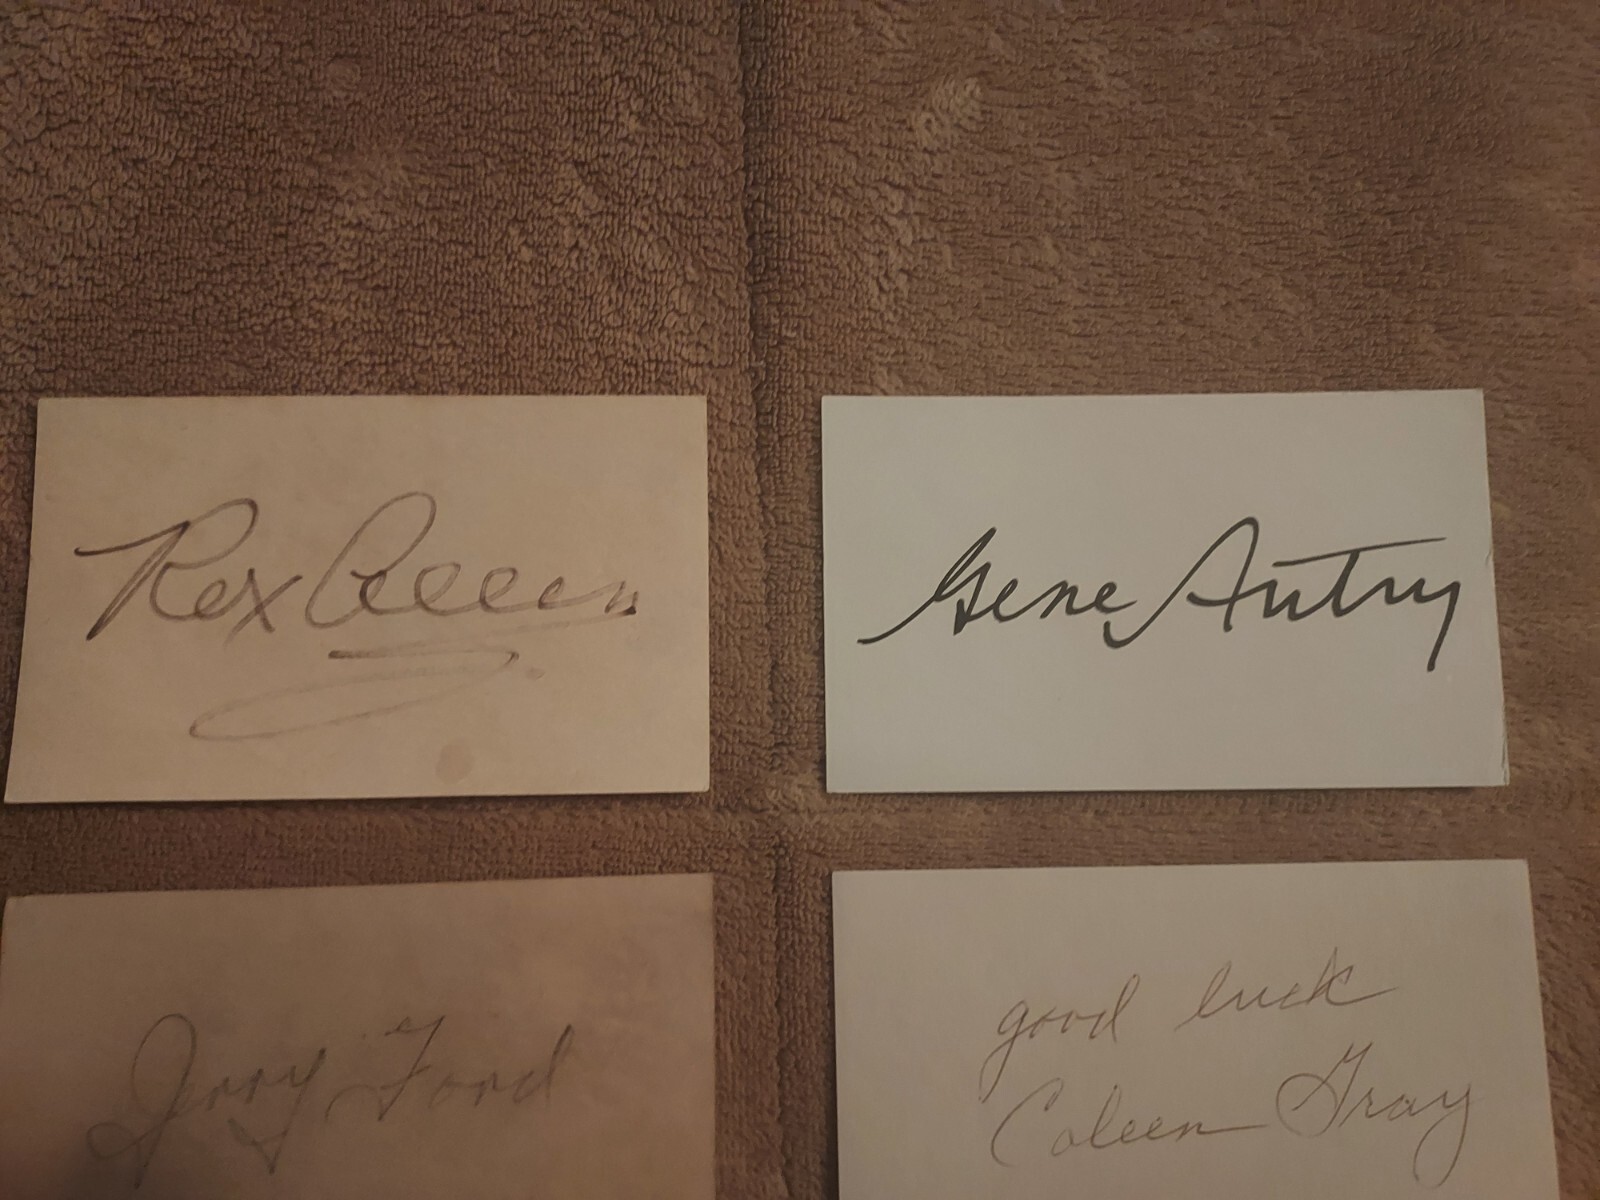 Rex Allen
Gene Autry
Jerry Ford
good luck
Coleen Gray